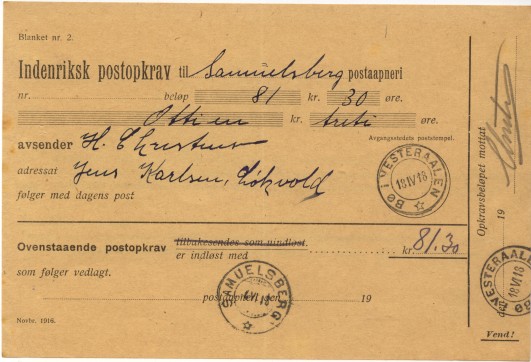 Blanket nr. 2.
Indenriksk postopkrav til Samuelsberg postaapneri
nr. beløp 81 kr. 30 øre.
Ottien kr. treti øre.
Avgangsstedets poststempel.
avsender H. Christens
adressat Jens Karlsen, Løkvold
følger med dagens post
BØ I VESTERAALEN
18 IV 18
Ovenstaaende postopkrav tilbakesendes som uindløst
er indløst med kr. 81.30
som følger vedlagt.
postaapneri den 19
SAMUELSBERG
VI 18
Norbr. 1916.
Opkravsbeløpet mottat
19
BØ I VESTERAALEN
18 VI 18
Vend!